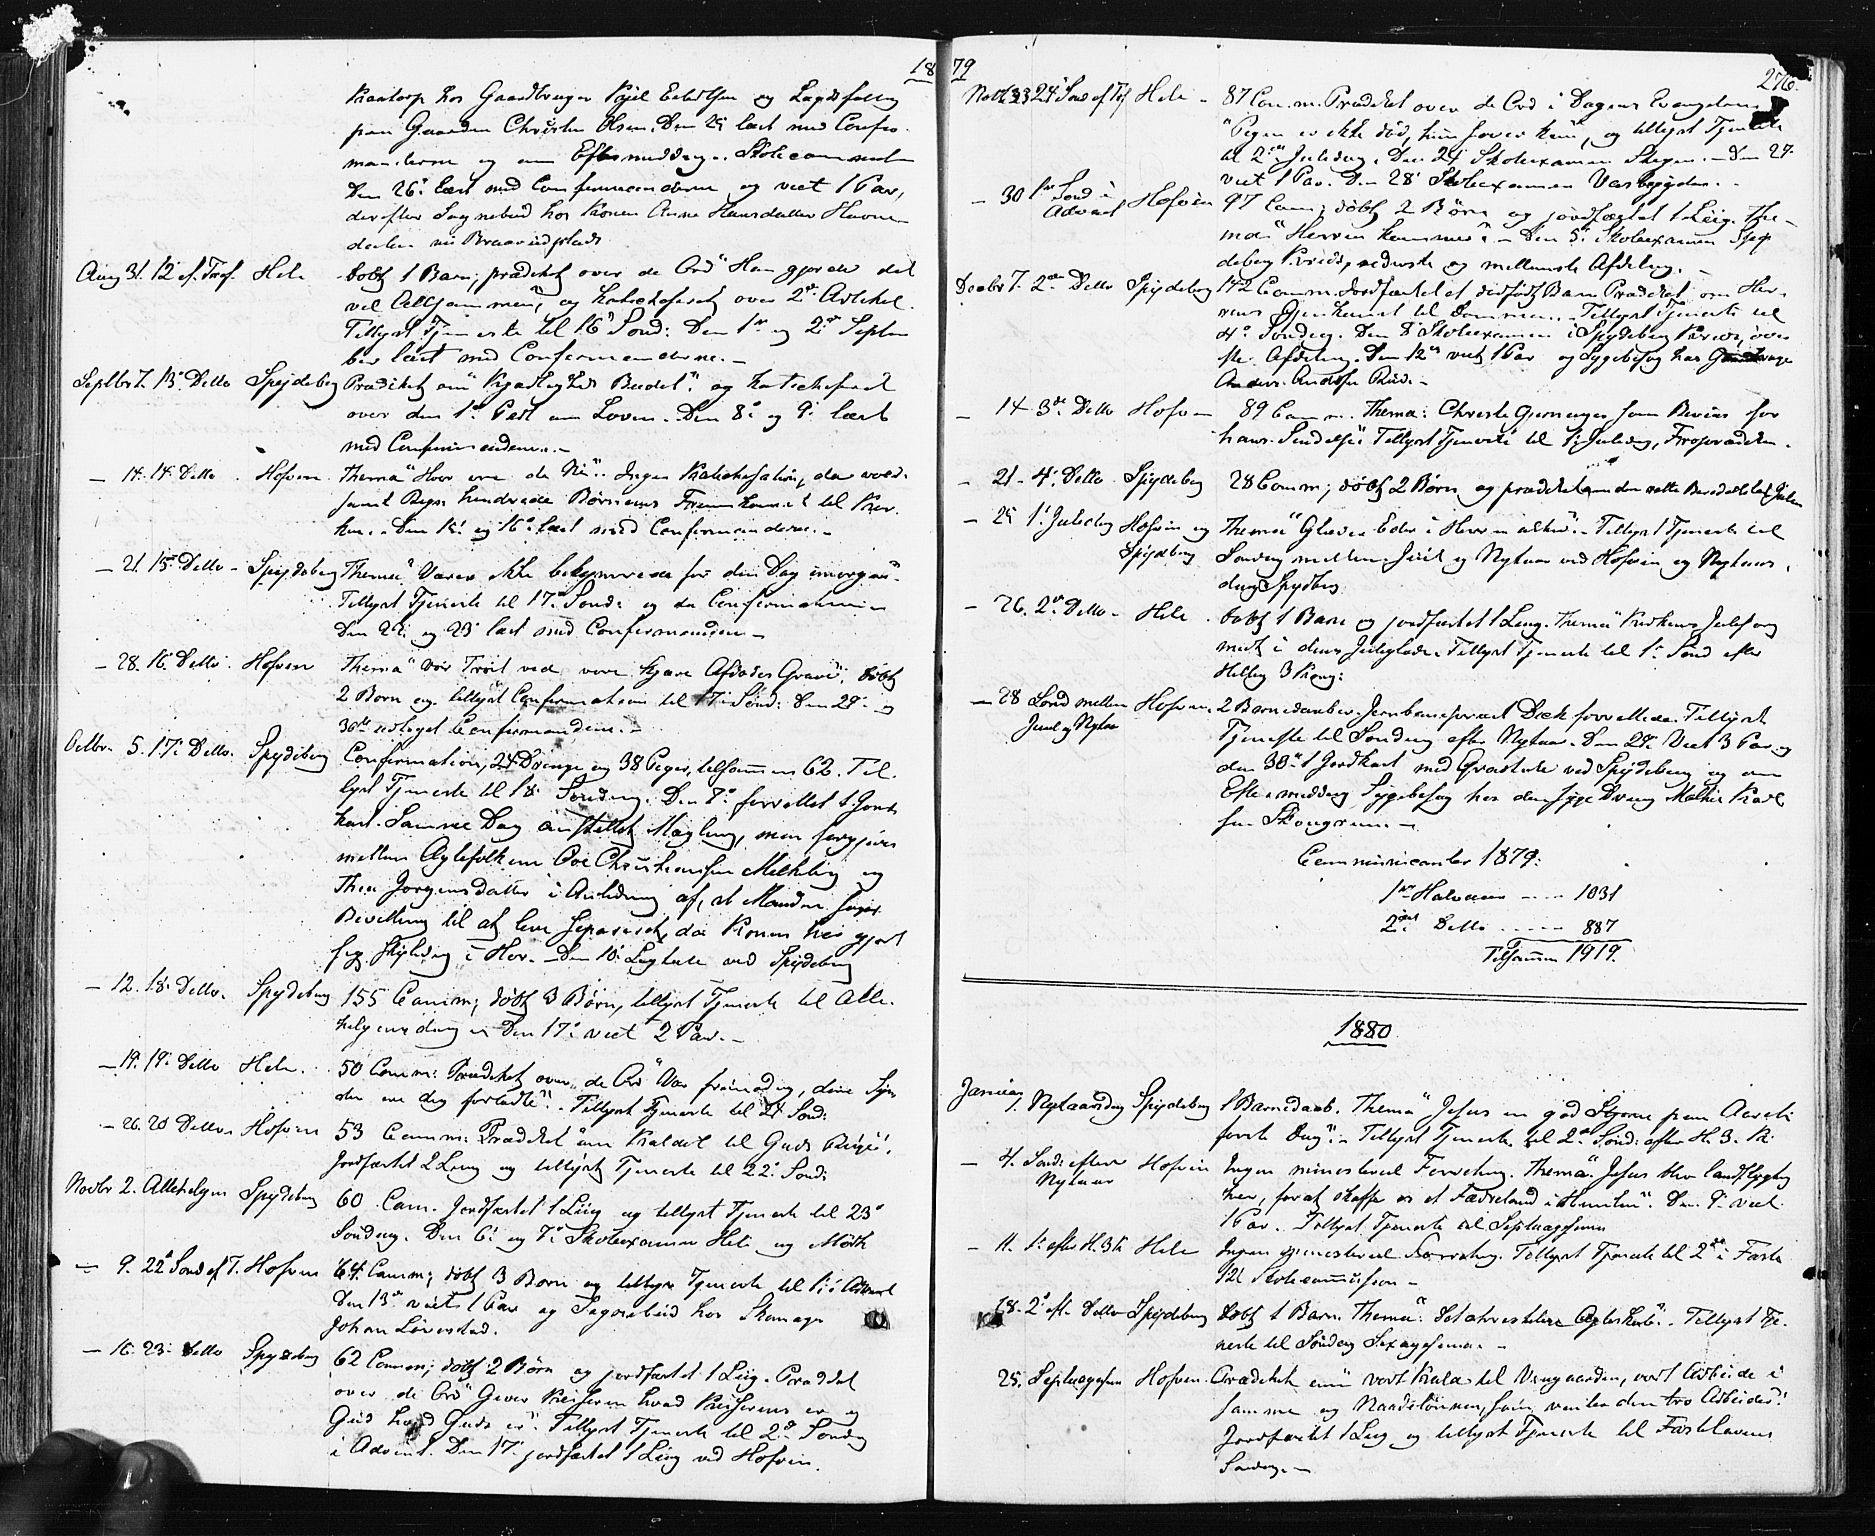 1879
276.
hos Gaardbruger Kjel og
paa Gaarden Christen Olsen. Den 25 læst med Confir-
manderne og om Eftermiddag. Skolecommission
Den 26: læst med Confirmanderne og viet 1 Par,
derefter Sognebud hos Konen Anne Hansdatter
Aug 31. 12 ef. Tref. Heli døbt 1 Barn, prædiket over de Ord "Han gjorde det
vel Altsammen", og katechiseret over 2den Artikel.
Tillyst Tjeneste til 16 Sønd: Den 1ste og 2den Septem
ber læst med Confirmanderne. –
Septbr 7. 13: Detto Spydeberg Prædiket om "Kjærligheds Budet." og katechiseret
over den 1ste Part om Loven. Den 8: og 9: læst
med Confirmanderne. –
– 14. 14: Detto Hofvin Thema "Hvor ere de Ni". Ingen Katechisation, da vold-
somt Regn hindrede Børnenes Fremkomst til Kir-
ken. Den 15: og 16: læst med Confirmanderne. –
– 21. 15: Detto – Spydeberg Thema "Værer ikke bekymrede for den Dag imorgen".
Tillyst Tjeneste til 17: Sønd: og da Confirmation
Den 22: og 23 læst med Confirmanderne –
– 28. 16: Detto. Hofvin Thema "Vor Trøst ved vore kjære Afdødes Grave", døbt
2 Børn og tillyst Confirmation til 17: Sønd: Den 29: og
30te udtaget Confirmanderne. –
Octbr 5. 17: Detto. Spydeberg Confirmation, 24 Drenge og 38 Piger, tilsammen 62. Til-
lyst Tjeneste til 18 Søndag. Den 7: forrettet 1 Jords
kast. Samme Dag anstillet Mægling, men forgjæves
mellem Ægtefolkene Ole Christensen og
Thea Jørgensdatter i Anledning af, at Manden søger
Bevilling til at leve separeret, da Konen har gjort
sig skyldig i Hor. – Den 10: Lagtale ved Spydeberg
– 12. 18: Detto. Spydeberg 155 Comm; døbt 3 Børn, tillyst Tjeneste til Alle-
helgensdag. – Den 17: viet 2 Par. –
– 19. 19: Detto Heli. 50 Comm: Prædiket over de Ord "Vær frimodig, dine Syn-
der ere dig forladte". – Tillyst Tjeneste til 21 Sønd:
– 26. 20 Detto. Hofvin 53 Comm: Prædiket om Kaldet til Guds Rige,
Jordfæstet 2 Liig og tillyst Tjeneste til 22: Sønd:
Novbr 2. Allehelgen Spydeberg 60 Com. Jordfæstet 1 Liig og tillyst Tjeneste til 23:
Søndag. Den 6: og 7: Skoleexamen Heli og
– 9. 22 Sønd ef T. Hofvin 64 Comm; døbt 3 Børn og tillyst Tjeneste til 1: i Advent
Den 13de viet 1 Par og Sognebud hos Skomager
Johan Løvestad.
– 16. 23: Detto Spydeberg 62 Comm; døbt 2 Børn og jordfæstet 1 Liig. Prædiket
over de Ord "Giver Keiseren hvad Keiserens er og
Gud hvad Guds er". Tillyst Tjeneste til 2den Søndag
i Advent. Den 17: jordfæstet 1 Liig ved Hofvin.
Novbr 23 24 Sønd ef Tref Heli – 87 Com. m. Prædiket over de Ord i Dagens Evangelium
"Pigen er ikke død, hun sover kun", og tillyst Tjeneste
til 2den Juledag. Den 24 Skoleexamen Stegen. – Den 27
viet 1 Par. Den 28: Skoleexamen
– 30 1ste Sønd i Advent Hofvin 97 Com; døbt 2 Børn og jordfæstet 1 Liig. The-
ma: "Herren kommer". – Den 5: Skoleexamen Spy-
deberg Kreds, nederste og mellemste Afdeling. –
Decbr 7. 2den Detto Spydeberg 142 Comm. Jordfæstet et dødfødt Barn. Prædiket om Her-
rens Gjenkomst til Dommen. – Tillyst Tjeneste til
4de Søndag. Den 8: Skoleexamen i Spydeberg Kreds, øver-
ste Afdeling. Den 12te viet 1 Par og Sygebesøg hos
Anders –
– 14 3die Detto Hofvin 89 Comm. Thema: Christi Gjerninger som Beviis for
hans Sendelse. Tillyst Tjeneste til 1: Juledag, Froprædiken.
– 21 – 4: Detto Spydeberg 28 Comm; døbt 2 Børn og prædiket om den rette Beredelse til Julen
– 25 1: Juledag Hofvin og Spydeberg Thema "Glæder Eder i Herren altid". – Tillyst Tjeneste til
Søndag mellem Juul og Nytaar ved Hofvin og Nytaars-
dag Spydberg
– 26. 2den Detto – Heli. døbt 1 Barn og jordfæstet 1 Liig. Thema "Kirkens Julesorg
midt i dens Juleglæde. Tillyst Tjeneste til 1ste Sønd efter
Hellig 3 Kong:
– 28 Sønd mellem Juul og Nytaar Hofvin. 2 Barnedaab. Tillyst
Tjeneste til Søndag efter Nytaar. Den 29: Viet 3 Par og
den 30te 1 Jordkast med Gravtale ved Spydeberg og om
Eftermiddag Sygebesøg hos den syge Dreng
Communicanter 1879:
1ste Halvaar ---- 1031
2det Detto ----- 887
Tilsammen 1919.
1880
Januar 1. Nytaarsdag Spydeberg 1 Barnedaab. Thema "Jesus en god Stjerne paa Aarets
første Dag". – Tillyst Tjeneste til 2den Sønd: efter H. 3. K:
– 4. Sønd: efter Nytaar Hofvin Ingen ministeriel Forretning. Thema: "Jesus blev landflygtig
her, for at skaffe os et Fædreland i Himlen". Den 9: viet
1 Par. Tillyst Tjeneste til Septuagesima
– 11. 1: efter H. 3 K Heli Ingen ministeriel Forretning. Tillyst Tjeneste til 2den i Faste
12: Skolecommission –
– 18. 2: ef. Detto Spydeberg Døbt 1 Barn. Thema: Det christelige Ægteskab". – Tillyst Tje-
neste til Søndag Sexagesima. –
25. Septuagesima Hofvin. Prædiket om vort Kald til Viingaarden, vort Arbeide i
samme og Naadelønnen, som venter den tro Arbeider!
Jordfæstet 1 Liig og tillyst Tjeneste til Fastelavens
Søndag. –